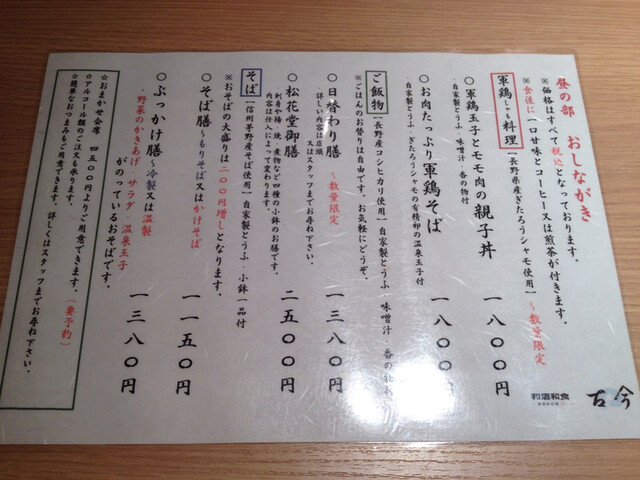 昼の部 おしながき
※価格はすべて税込となっております。
※食後に一口甘味とコーヒー又は煎茶が付きます。
軍鶏しゃも料理 【長野県産ぎたろうシャモ使用】 ～数量限定
○軍鶏玉子とモモ肉の親子丼 一八〇〇円
自家製とうふ・味噌汁・香の物付
○お肉たっぷり軍鶏そば 一八〇〇円
自家製とうふ・ぎたろうシャモの有精卵の温泉玉子付
ご飯物 【長野産コシヒカリ使用】 自家製とうふ・味噌汁・香の物付
※ごはんのお替りは自由です。お気軽にどうぞ。
○日替わり膳 ～数量限定 一三八〇円
詳しい内容は店頭
又はスタッフまでお尋ね下さい。
○松花堂御膳 二五〇〇円
刺身や揚・焼・煮物など四種の小鉢のお膳です。
内容は仕入によって変わります。
そば 【信州茅野産そば使用】 自家製とうふ・小鉢一品付
※おそばの大盛りは二〇〇円増しとなります。
○そば膳～もりそば又はかけそば 一一五〇円
○ぶっかけ膳～冷製又は温製 一三八〇円
野菜のかきあげ・サラダ・温泉玉子
がのっているおそばです。
☆おまかせ会席 四五〇〇円よりご用意できます。（要予約）
☆アルコール類のご注文も承ります。
☆簡単なおつまみもご用意できます。詳しくはスタッフまでお尋ね下さい。
和酒和食
古今